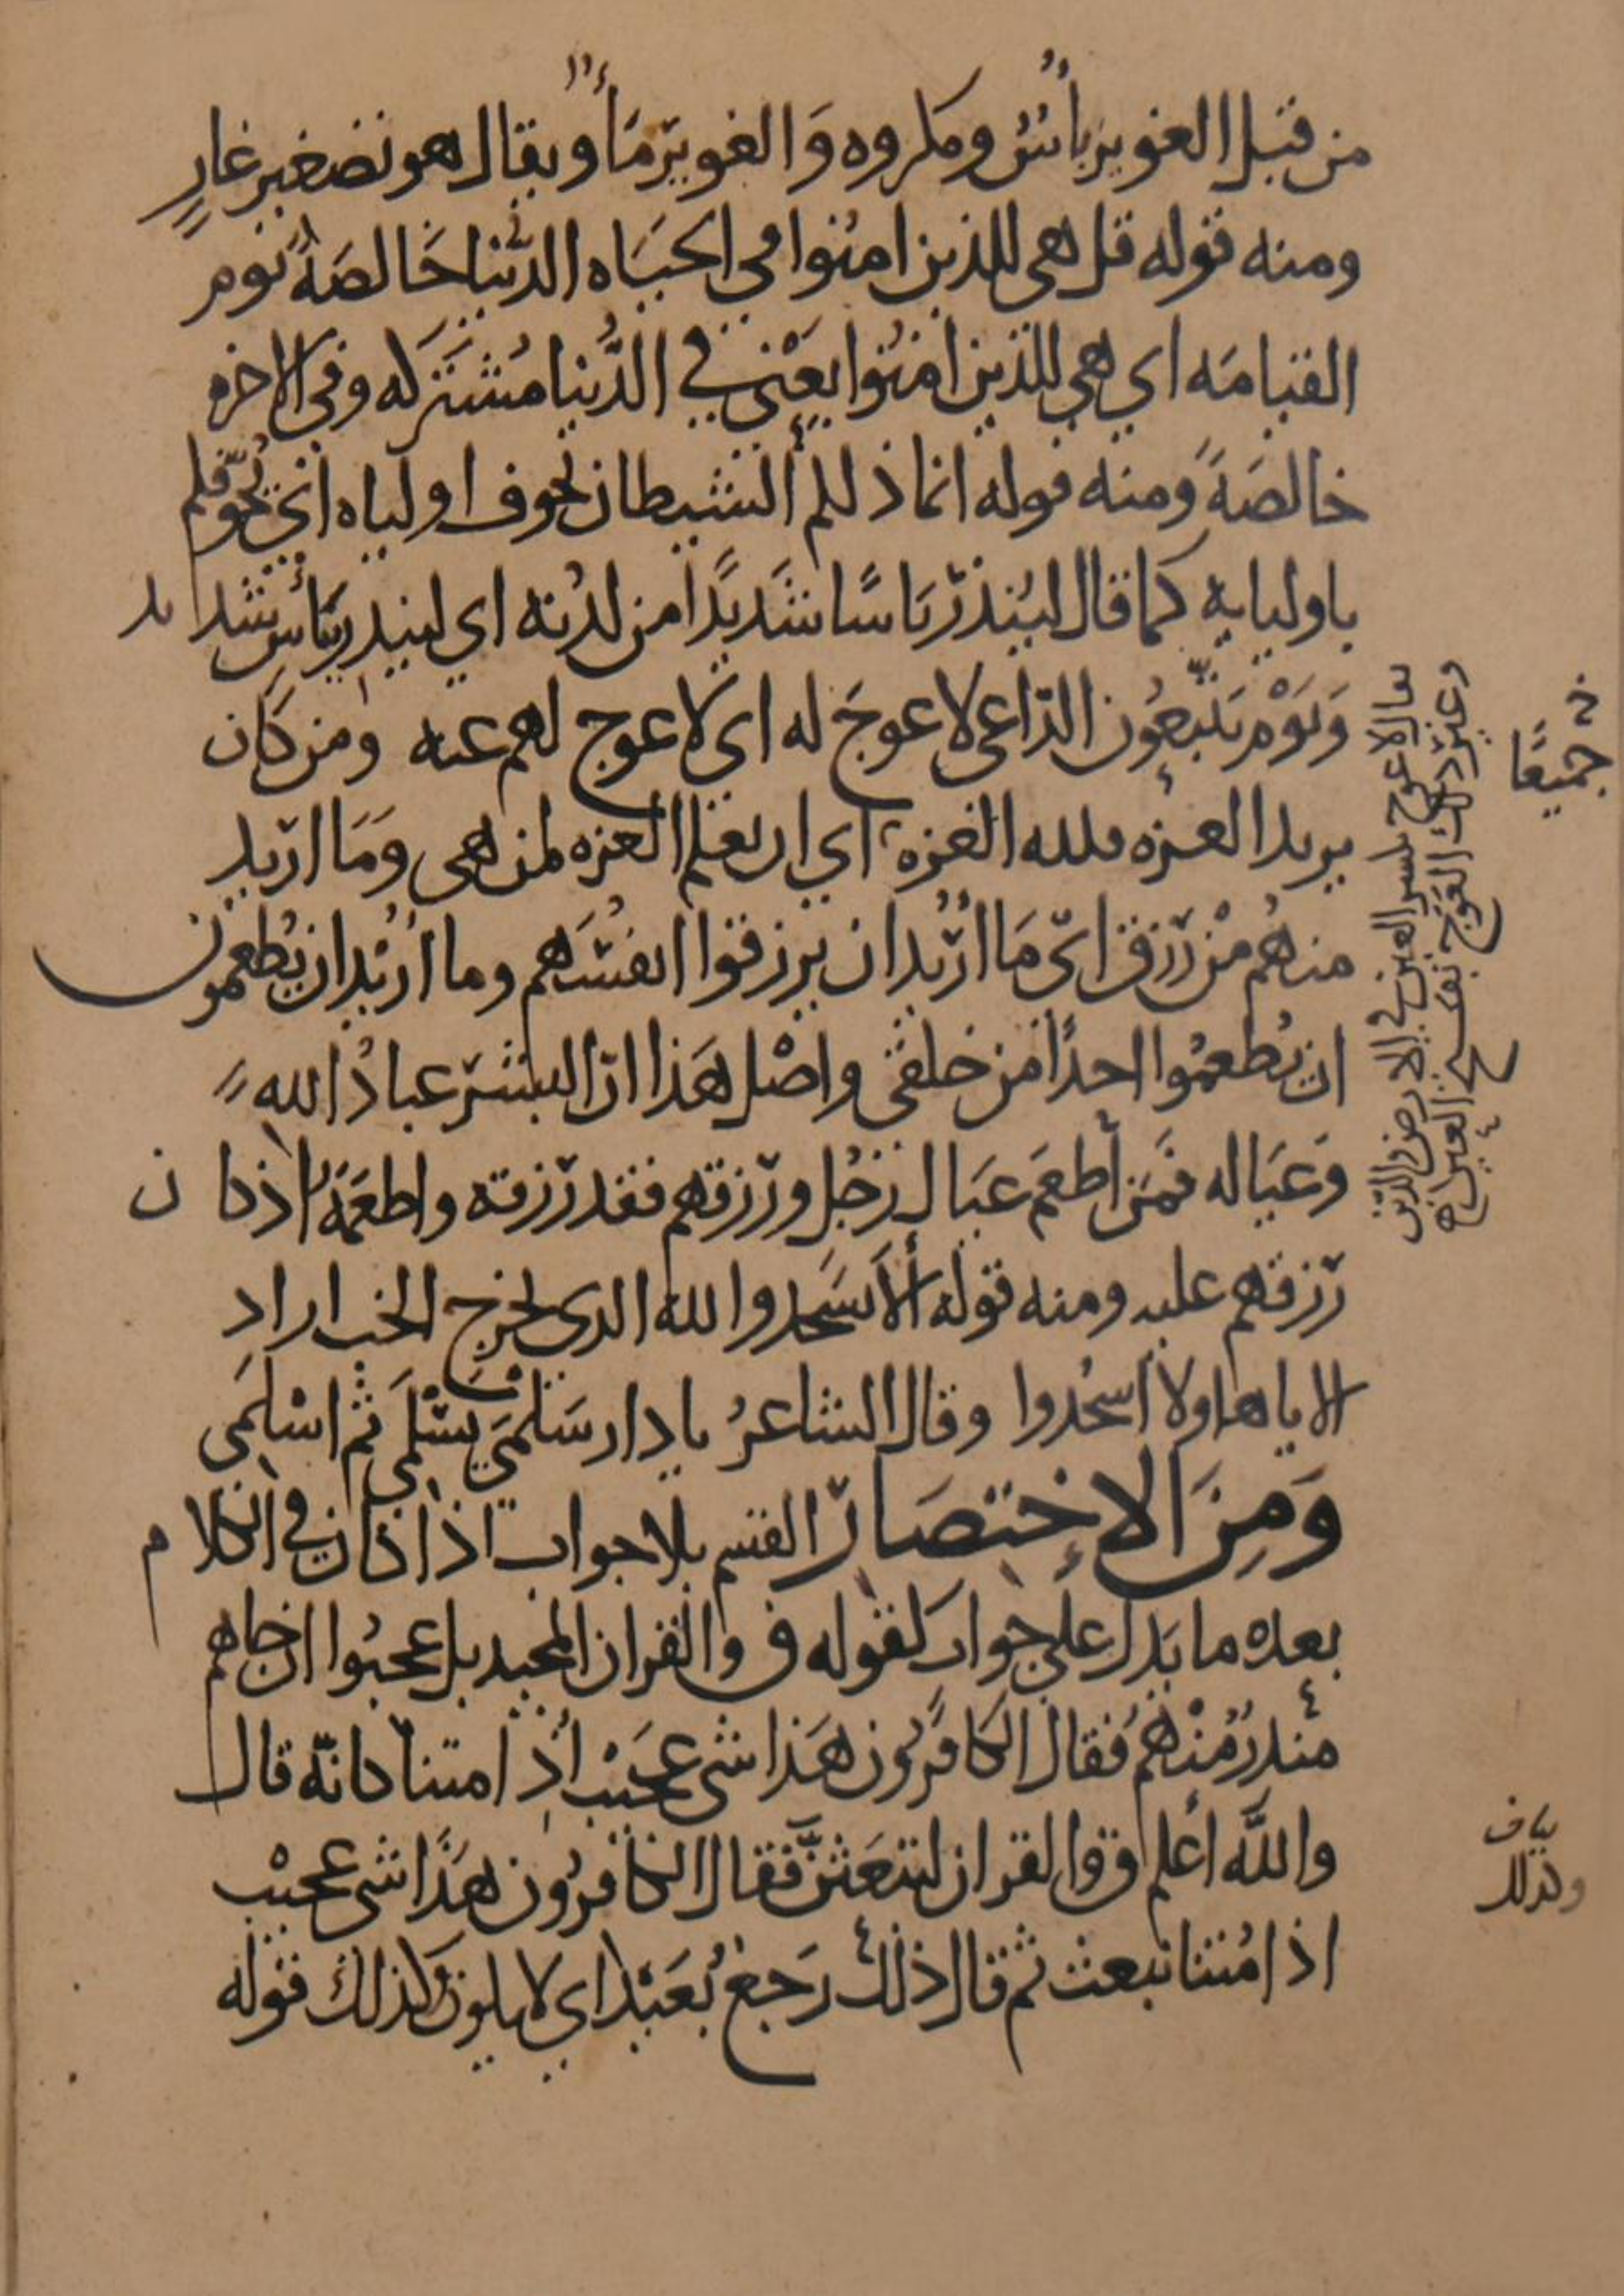 من قبل الغوير بأسٌ ومكروه وَالغوير مَاءٌ ويقال هو تصغير غارٍ
ومنه قوله قل هى للذين امنوا في الحيَاه الدّنيا خَالصَةً يَوم
القيامَه اي هي للذين امنوا يعْني في الدُّنيا مُشتَركه وفي الاخره
خالصَةً ومنه قوله انما ذلكم الشيطان يخوف اولياه اي يُخوّفكم
باوليايه كما قال ليُنذرَ بَاسًا شَديدًا من لدُنه اي لينذر ببَأسٍ شديد
وَيَوْم يَتّبعُون الدّاعى لا عوجَ له اي لا عوج لهم عنه ومن كَان
يريد العزه فلله العزه اي ان يعلم العزه لمن هى وَمَا اريد
منهُم مْن رّزق ايّ مَا اُرّيد ان يرزقوا انفسَهم وما اُريْد ان يُطعمون
ان يُطعمُوا احدًا من خلقي واصْل هَذا انّ البشرَ عبادُ الله
وَعيَاله فمَن أطعمَ عيَال رَجُل ورّزقهم فقد رّزقه واطعَمَهُ اذ كان
رّزقهم عليه ومنه قوله ألاّ يَسَجدوا لله الذي يخرج الخب اراد
الا يا هاولا اسْجُدوا وقال الشاعرُ يا دار سَلمَي يا اسْلمَي ثم اسْلمَي
وَمِنَ الاختصَار القسم بلا جواب اذا كان في الكلام
بعده ما يَدل علي جواب كقوله ق والقران المجيد بل عجبُوا ان جاهم
منذرُ مُنْهمْ فقال الكافرُون هَذا شي عجَيْب اُذِا متنا كانّه قال
والله أعلم ق والقران لتبعَثنَّ فقال الكافرُون هَذَا شي عجيْب
اذا مُتنا نبعث ثم قال ذلك رَجعٌ بُعَيْد اي لا يكون وَكذلك قوله
جميعًا
يقال لا عوج بكسر العين في الارض والدّين
وغيرَ ذلك العَوج بفتح العين